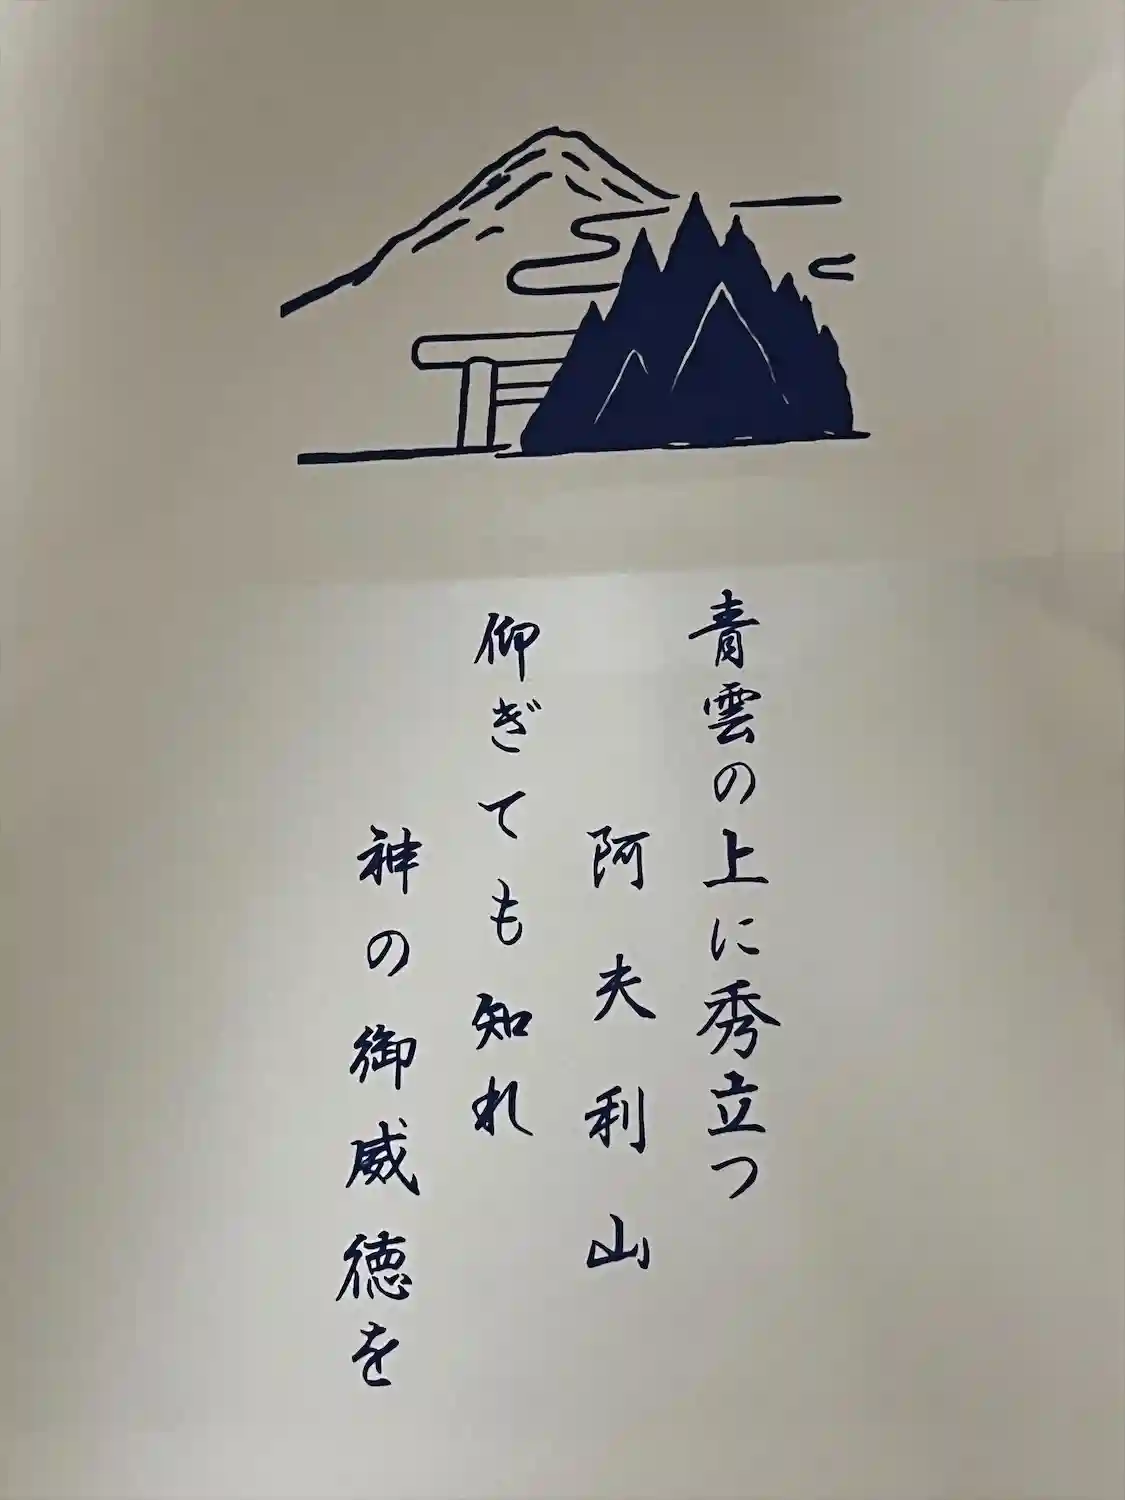 青雲の上に秀立つ
阿夫利山
仰ぎても知れ
神の御威徳を